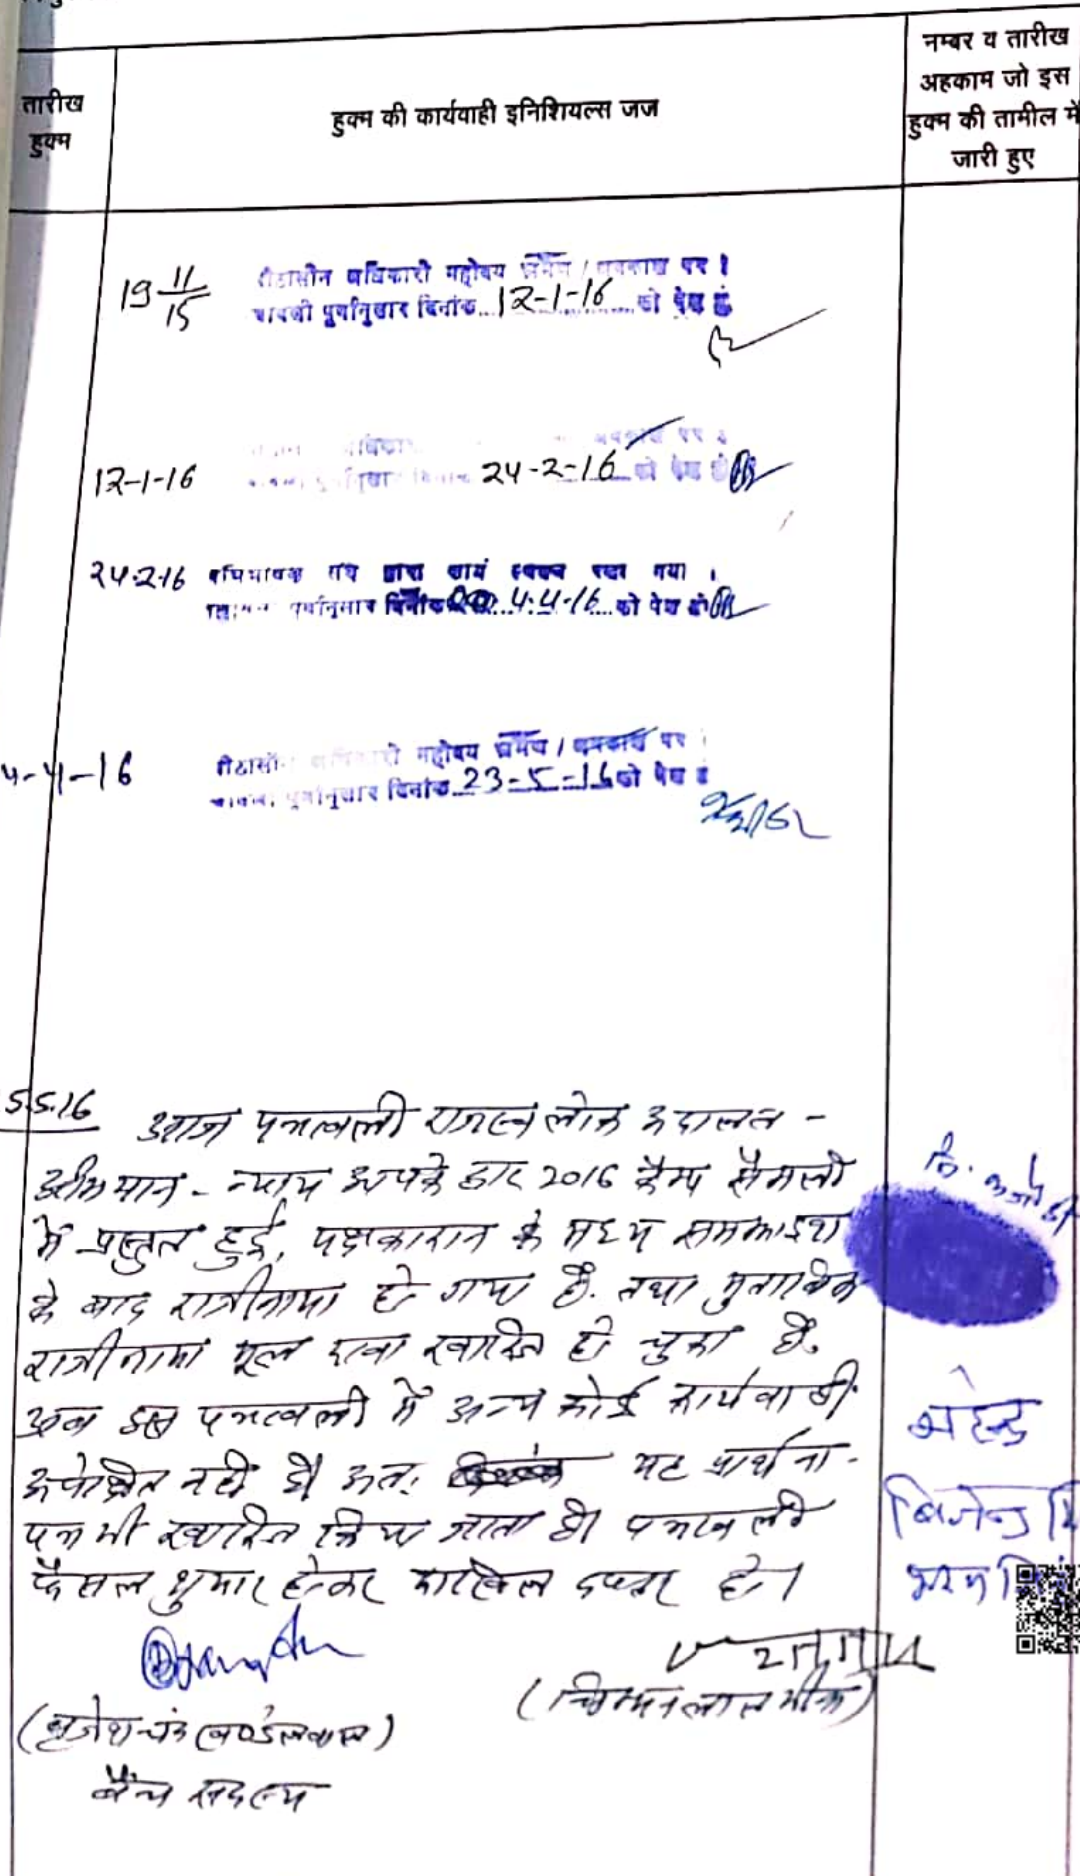 तारीख
हुक्म
हुक्म की कार्यवाही इनिशियल्स जज
नम्बर व तारीख
अहकाम जो इस
हुक्म की तामील में
जारी हुए
19 11/15
अधिकारी महोदय भ्रमण / अवकाश पर ।
पूर्वानुसार दिनांक 12-1-16 को पेश हो
12-1-16
अवकाश पर
दिनांक 24-2-16 को पेश हो
24-2-16
द्वारा कार्य स्थगन रखा गया ।
पूर्वानुसार दिनांक 4-4-16 को पेश हो
4-4-16
महोदय भ्रमण / अवकाश पर
पूर्वानुसार दिनांक 23-5-16 को पेश हो
5.5.16
आज पत्रावली राजस्व लोक अदालत -
अभियान - न्याय आपके द्वार 2016 कैम्प सैमली
में प्रस्तुत हुई, पक्षकारान के मध्य समझाइश
के बाद राजीनामा हो गया है. तथा मुताबिक
राजीनामा मूल दावा खारिज हो चुका है.
अब इस पत्रावली में अन्य कोई कार्यवाही
अपेक्षित नही है अतः यह प्रार्थना -
पत्र भी खारिज किया जाता है। पत्रावली
फैसल शुमार होकर दाखिल दफ्तर हो।
महेन्द्र
बिजेन्द्र
(बृजेश चंद खण्डेलवाल)
(चिम्मनलाल मीना)
बैंच सदस्य